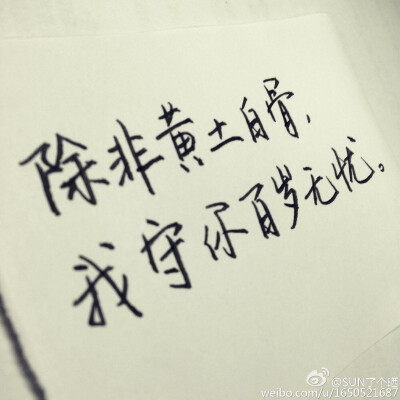 除非黄土白骨,
我守你百岁无忧。
@SUN了个透
weibo.com/u/1650521687